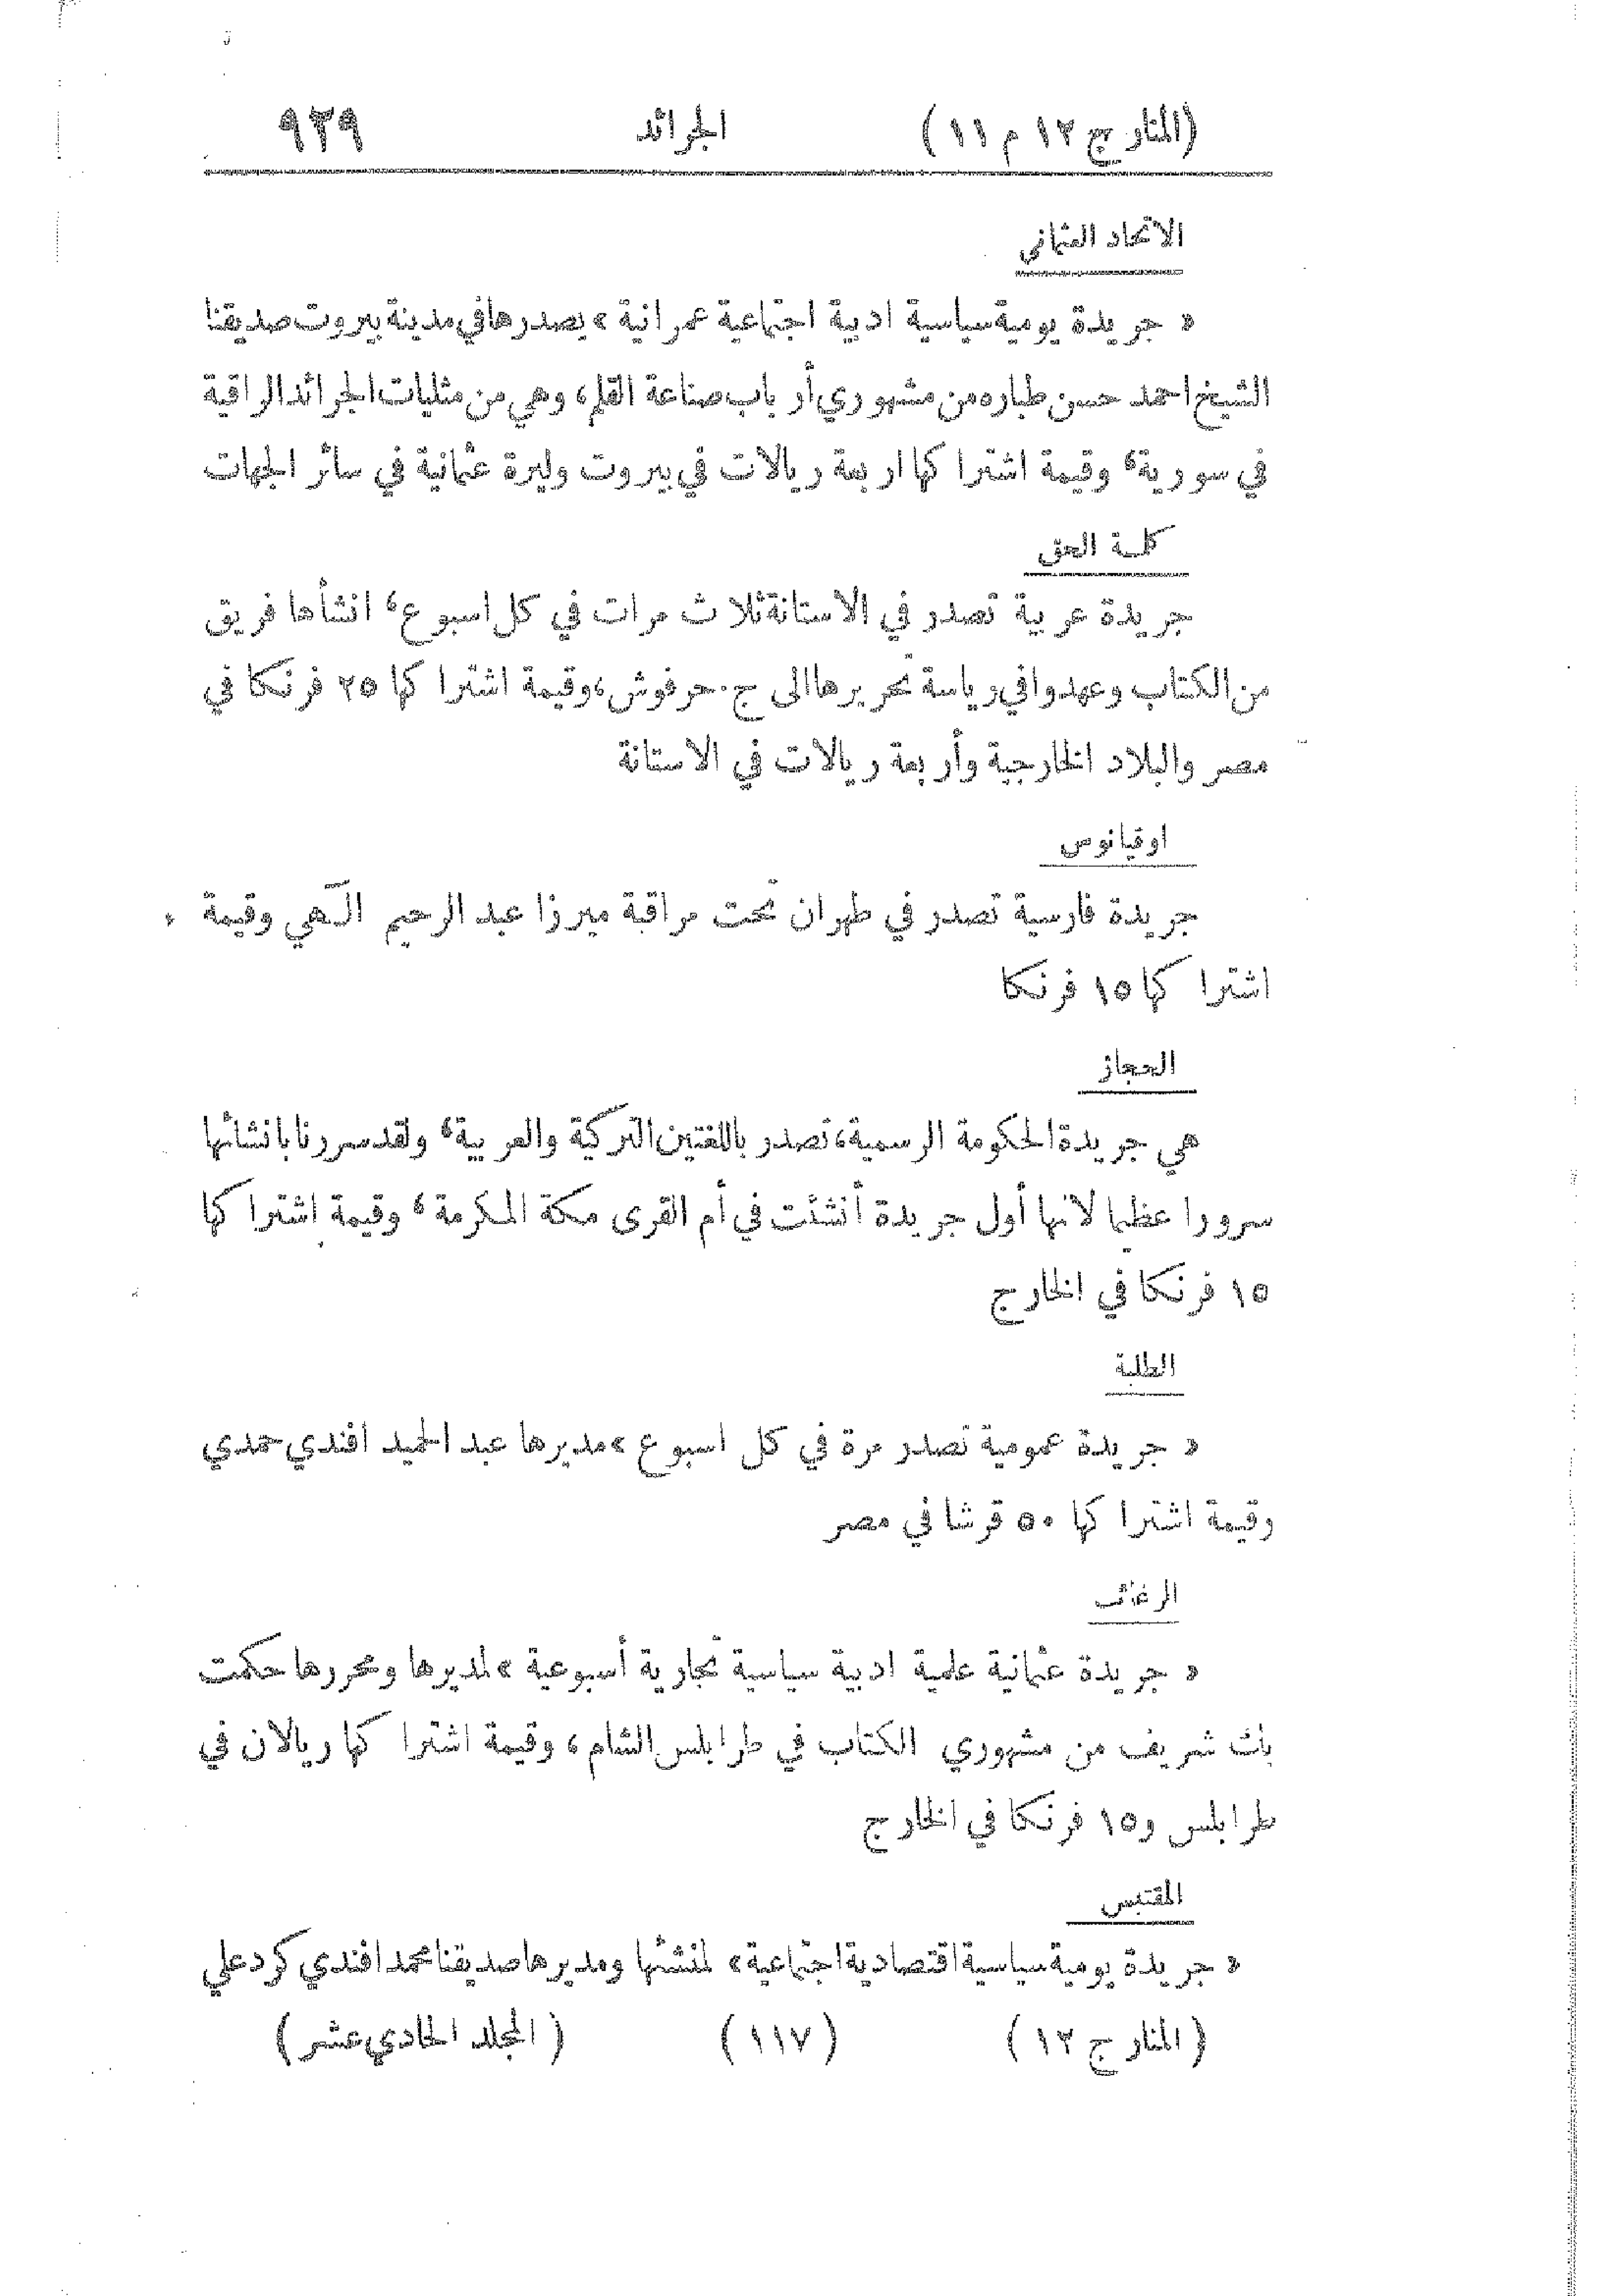 (المنار ج ١٢ م ١١) الجرائد ٩٣٩
الاتحاد العثماني
« جريدة يومية سياسية ادبية اجتماعية عمرانية » يصدرها في مدينة بيروت صديقنا
الشيخ احمد حسن طباره من مشهوري أرباب صناعة القلم، وهي من مثليات الجرائد الراقية
في سورية، وقيمة اشتراكها اربعة ريالات في بيروت وليرة عثمانية في سائر الجهات
كلمة الحق
جريدة عربية تصدر في الاستانة ثلاث مرات في كل اسبوع، انشأها فريق
من الكتاب وعهدوا في رياسة تحريرها الى ج. حرفوش، وقيمة اشتراكها ٢٥ فرنكا في
مصر والبلاد الخارجية وأربعة ريالات في الاستانة
اوقيانوس
جريدة فارسية تصدر في طهران تحت مراقبة ميرزا عبد الرحيم الٓهي وقيمة
اشتراكها ١٥ فرنكا
الحجاز
هي جريدة الحكومة الرسمية، تصدر باللغتين التركية والعربية، ولقد سررنا بانشائها
سرورا عظيما لانها أول جريدة أنشئت في أم القرى مكة المكرمة، وقيمة اشتراكها
١٥ فرنكا في الخارج
الطلبة
« جريدة عمومية تصدر مرة في كل اسبوع » مديرها عبد الحميد افندي حمدي
وقيمة اشتراكها ٥٠ قرشا في مصر
الرغائب
« جريدة عثمانية علمية ادبية سياسية تجارية أسبوعية » لمديرها ومحررها حكمت
بك شريف من مشهوري الكتاب في طرابلس الشام، وقيمة اشتراكها ريالان في
طرابلس و١٥ فرنكا في الخارج
المقتبس
« جريدة يومية سياسية اقتصادية اجتماعية » لمنشئها ومديرها صديقنا محمد افندي كرد علي
(المنار ج ١٢) (١١٧) (المجلد الحادي عشر)